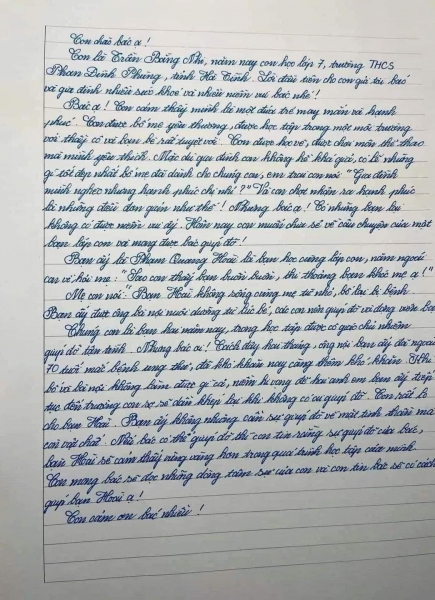 Con chào bác ạ!
Con là Trần Băng Nhi, năm nay con học lớp 7, trường THCS
Phan Đình Phùng, tỉnh Hà Tĩnh. Lời đầu tiên cho con gửi tới bác
và gia đình nhiều sức khoẻ và nhiều niềm vui bác nhé!
Bác ạ! Con cảm thấy mình là một đứa trẻ may mắn và hạnh
phúc. Con được bố mẹ yêu thương, được học tập trong một môi trường
với thầy cô và bạn bè rất tuyệt vời. Con được học vẽ, được chơi môn thể thao
mà mình yêu thích. Mặc dù gia đình con không hề khá giả, có lẽ những
gì tốt đẹp nhất bố mẹ đã dành cho chúng con, em trai con nói "Gia đình
mình nghèo nhưng hạnh phúc chị nhỉ?" Và con chợt nhận ra hạnh phúc
là những điều đơn giản như thế! Nhưng bác ạ! Có những bạn lại
không có được niềm vui ấy. Hôm nay con muốn chia sẻ về câu chuyện của một
bạn lớp con và mong được bác giúp đỡ!
Bạn ấy là Phạm Quang Hoài là bạn học cùng lớp con, năm ngoái
con về hỏi mẹ: "Sao con thấy bạn buồn buồn, thi thoảng bạn khóc mẹ ạ!"
Mẹ con nói: Bạn Hoài không sống cùng mẹ từ nhỏ, bố lại bị bệnh.
Bạn ấy được ông bà nội nuôi dưỡng từ lúc bé, các con nên giúp đỡ và động viên bạn
Chúng con là bạn hai năm nay, trong học tập được cô giáo chủ nhiệm
giúp đỡ tận tình. Nhưng bác ơi! Cách đây hai tháng, ông nội bạn ấy đã ngoài
70 tuổi mắc bệnh ung thư, đã khó khăn nay càng thêm khó khăn. Khi
bố và bà nội không làm được gì cả, niềm hi vọng để hai anh em bạn ấy tiếp
tục đến trường con sợ sẽ dần khép lại khi không có ai giúp đỡ. Con rất lo
cho bạn Hoài. Bạn ấy không những cần sự giúp đỡ về mặt tinh thần mà
còn vật chất. Nếu bác có thể giúp đỡ thì con tin rằng sự giúp đỡ của bác,
bạn Hoài sẽ cảm thấy vững vàng hơn trong quá trình học tập của mình.
Con mong bác sẽ đọc những dòng tâm sự của con và con tin bác sẽ có cách
giúp bạn Hoài ạ!
Con cảm ơn bác nhiều!